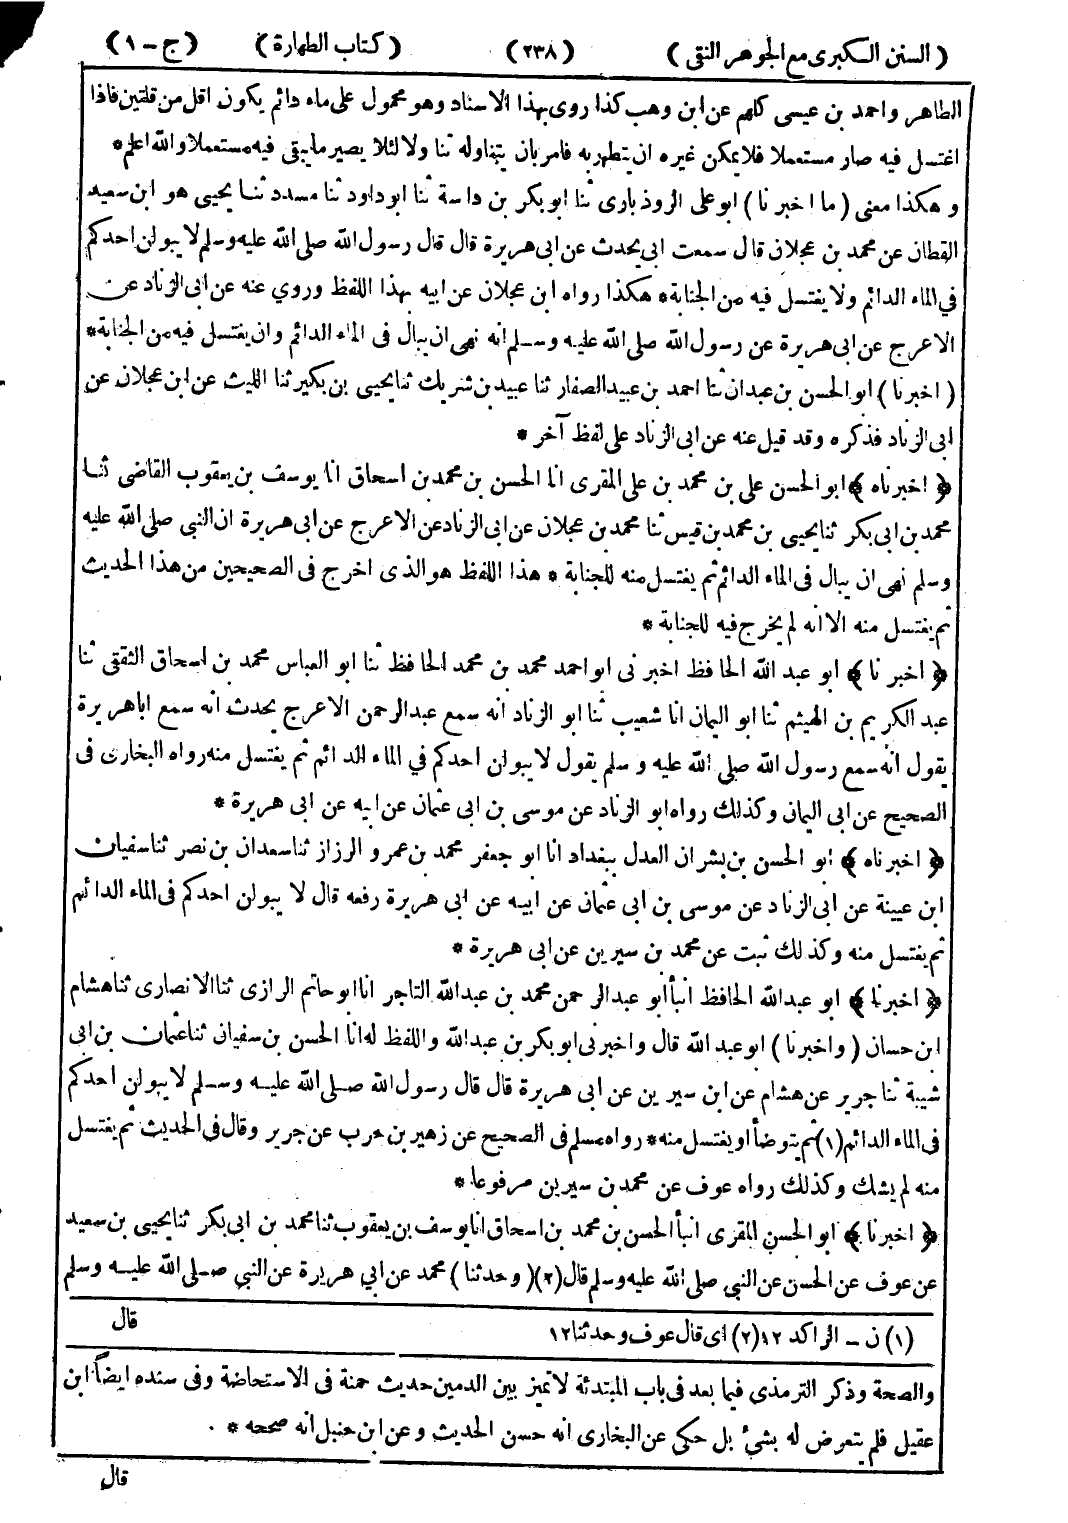 ( السنن الكبرى مع الجوهر النقى ) ( ٢٣٨ ) ( كتاب الطهارة ) ( ج - ١ )
الطاهر واحمد بن عيسى كلهم عن ابن وهب كذا روى بهذا الاسناد وهو محمول على ماء دائم يكون اقل من قلتين فاذا
اغتسل فيه صار مستعملا فلا يمكن غيره ان يتطهر به فامر بان يتناوله تنا ولا لئلا يصير ما يبقى فيه مستعملا والله اعلم *
و هكذا معنى ( ما اخبر نا ) ابو على الروذبارى ثنا ابو بكر بن داسة ثنا ابو داود ثنا مسدد ثنا يحيى هو ابن سعيد
القطان عن محمد بن عجلان قال سمعت ابى يحدث عن ابى هريرة قال قال رسول الله صلى الله عليه وسلم لا يبولن احدكم
في الماء الدائم ولا يغتسل فيه من الجنابة * هكذا رواه ابن عجلان عن ابيه بهذا اللفظ وروي عنه عن ابى الزناد عن
الاعرج عن ابى هريرة عن رسول الله صلى الله عليه وسلم انه نهى ان يبال فى الماء الدائم وان يغتسل فيه من الجنابة *
( اخبرنا ) ابو الحسن بن عبدان ثنا احمد بن عبيد الصفار ثنا عبيد بن شريك ثنا يحيى بن بكير ثنا الليث عن ابن عجلان عن
ابى الزناد فذكره وقد قيل عنه عن ابى الزناد على لفظ آخر *
﴿ اخبرناه ﴾ ابو الحسن على بن محمد بن على المقرى انا الحسن بن محمد بن اسحاق انا يوسف بن يعقوب القاضى ثنا
محمد بن ابى بكر ثنا يحيى بن محمد بن قيس ثنا محمد بن عجلان عن ابى الزناد عن الاعرج عن ابى هريرة ان النبى صلى الله عليه
وسلم نهى ان يبال فى الماء الدائم ثم يغتسل منه للجنابة * هذا اللفظ هو الذى اخرج فى الصحيحين من هذا الحديث
ثم يغتسل منه الا انه لم يخرج فيه للجنابة *
﴿ اخبر نا ﴾ ابو عبد الله الحافظ اخبر نى ابو احمد محمد بن محمد الحافظ ثنا ابو العباس محمد بن اسحاق الثقفى ثنا
عبد الكريم بن الهيثم ثنا ابو اليمان انا شعيب ثنا ابو الزناد انه سمع عبدالرحمن الاعرج يحدث انه سمع اباهريرة
يقول انه سمع رسول الله صلى الله عليه و سلم يقول لا يبولن احدكم في الماء الدائم ثم يغتسل منه رواه البخارى فى
الصحيح عن ابى اليمان وكذلك رواه ابو الزناد عن موسى بن ابى عثمان عن ابيه عن ابى هريرة *
﴿ اخبرناه ﴾ ابو الحسن بن بشران العدل ببغداد انا ابو جعفر محمد بن عمرو الرزاز ثنا سعدان بن نصر ثنا سفيان
ابن عيينة عن ابى الزناد عن موسى بن ابى عثمان عن ابيه عن ابى هريرة رفعه قال لا يبولن احدكم فى الماء الدائم
ثم يغتسل منه وكذلك ثبت عن محمد بن سيرين عن ابى هريرة *
﴿ اخبرنا ﴾ ابو عبدالله الحافظ انبأ أبو عبدالرحمن محمد بن عبدالله التاجر انا ابو حاتم الرازى ثنا الانصارى ثنا هشام
ابن حسان ( واخبرنا ) ابو عبد الله قال واخبرنى ابو بكر بن عبدالله واللفظ له انا الحسن بن سفيان ثنا عثمان بن ابى
شيبة ثنا جرير عن هشام عن ابن سيرين عن ابى هريرة قال قال رسول الله صلى الله عليه وسلم لا يبولن احدكم
فى الماء الدائم (١) ثم يتوضأ او يغتسل منه * رواه مسلم فى الصحيح عن زهير بن حرب عن جرير وقال فى الحديث ثم يغتسل
منه لم يشك وكذلك رواه عوف عن محمد بن سيرين مرفوعا *
﴿ اخبرنا ﴾ ابو الحسن المقرى انبأ الحسن بن محمد بن اسحاق انا يوسف بن يعقوب ثنا محمد بن ابى بكر ثنا يحيى بن سعيد
عن عوف عن الحسن عن النبى صلى الله عليه وسلم قال (٢) ( وحدثنا ) محمد عن ابي هريرة عن النبى صلى الله عليه وسلم
قال
(١) ن - الراكد ١٢ (٢) اى قال عوف وحدثنا ١٢
والصحة وذكر الترمذى فيما بعد فى باب المبتدئة لا تميز بين الدمين حديث حمنة فى الاستحاضة وفى سنده ايضاً ابن
عقيل فلم يتعرض له بشئ بل حكى عن البخارى انه حسن الحديث وعن ابن حنبل انه صححه * .
قال